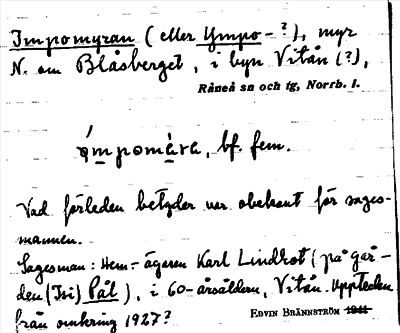 Impomyran (eller Ympo-?), myr
N. om Blåsberget, i byn Vitån (?),
Råneå sn och tg, Norrb. l.
bf. fem.
Vad förleden betyder var obekant för sages-
mannen.
Sagesman: Hem.-ägaren Karl Lindrot (på går-
den (Isi) Pål), i 60-årsåldern, Vitån. Uppteckn.
från omkring 1927?
EDVIN BRÄNNSTRÖM 1941